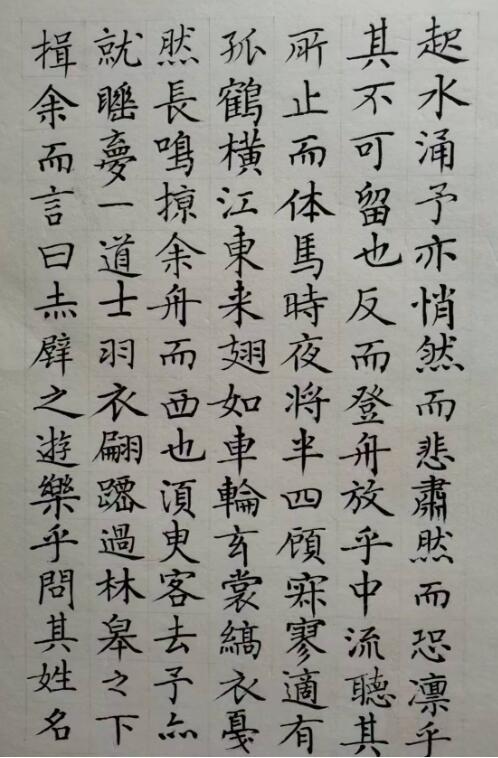 起水涌予亦悄然而悲肅然而恐凛乎
其不可留也反而登舟放乎中流聽其
所止而体馬時夜将半四顧寂寥適有
孤鶴横江東来翅如車輪玄裳縞衣戛
然長鳴掠余舟而西也須臾客去予亦
就睡夢一道士羽衣翩躚過林皋之下
揖余而言曰赤壁之遊樂乎問其姓名